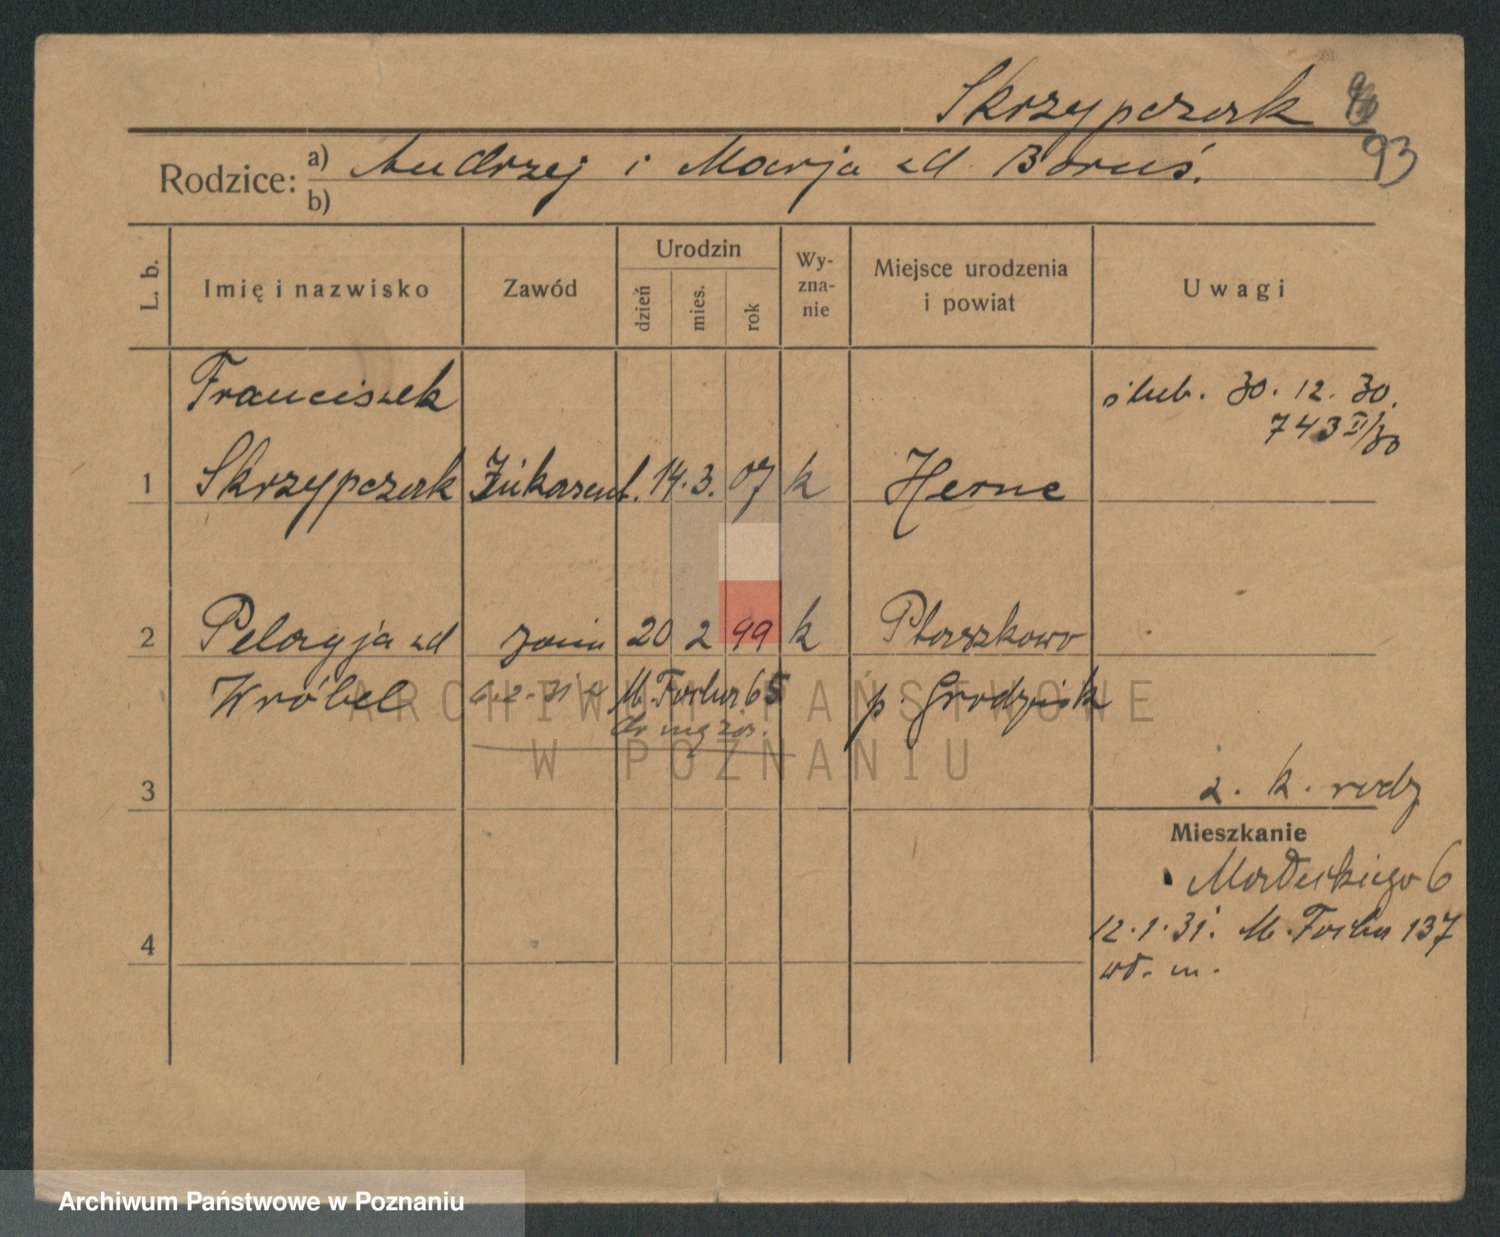 Skrzypczak
93
Rodzice: a) Andrzej i Marja zd. Boruś.
b)
L. b.
Imię i nazwisko
Zawód
Urodzin
dzień
mies.
rok
Wy-
zna-
nie
Miejsce urodzenia
i powiat
Uwagi
Franciszek
ślub. 30. 12. 30.
743 II/30
1 Skrzypczak 14. 3. 07 k Herne
2 Pelagja zd żona 20 2 99 k Ptaszkowo
Wróbel 6.2.31 M. Focha 65 p. Grodzisk
3
z. k. rodz
Mieszkanie
Małeckiego 6
12.1.31. M. Focha 137
4
wł. m.
ARCHIWUM PAŃSTWOWE
W POZNANIU
Archiwum Państwowe w Poznaniu